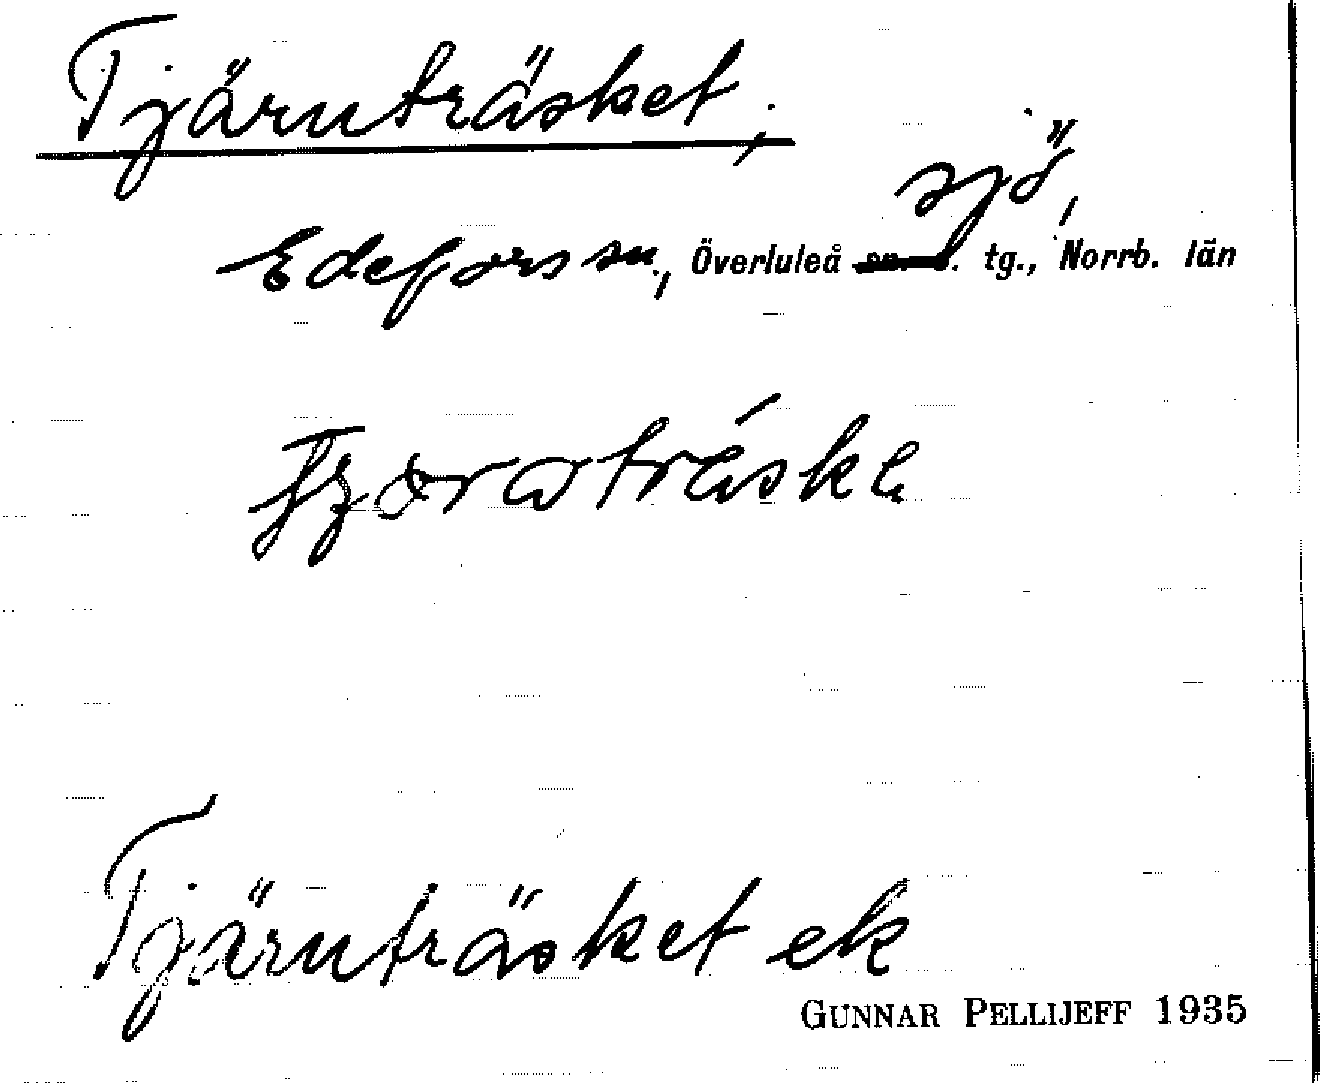 Tjärnträsket,
sjö,
Edefors sn., Överluleå tg., Norrb. län
Tjärnträsket ek
GUNNAR PELLIJEFF 1935